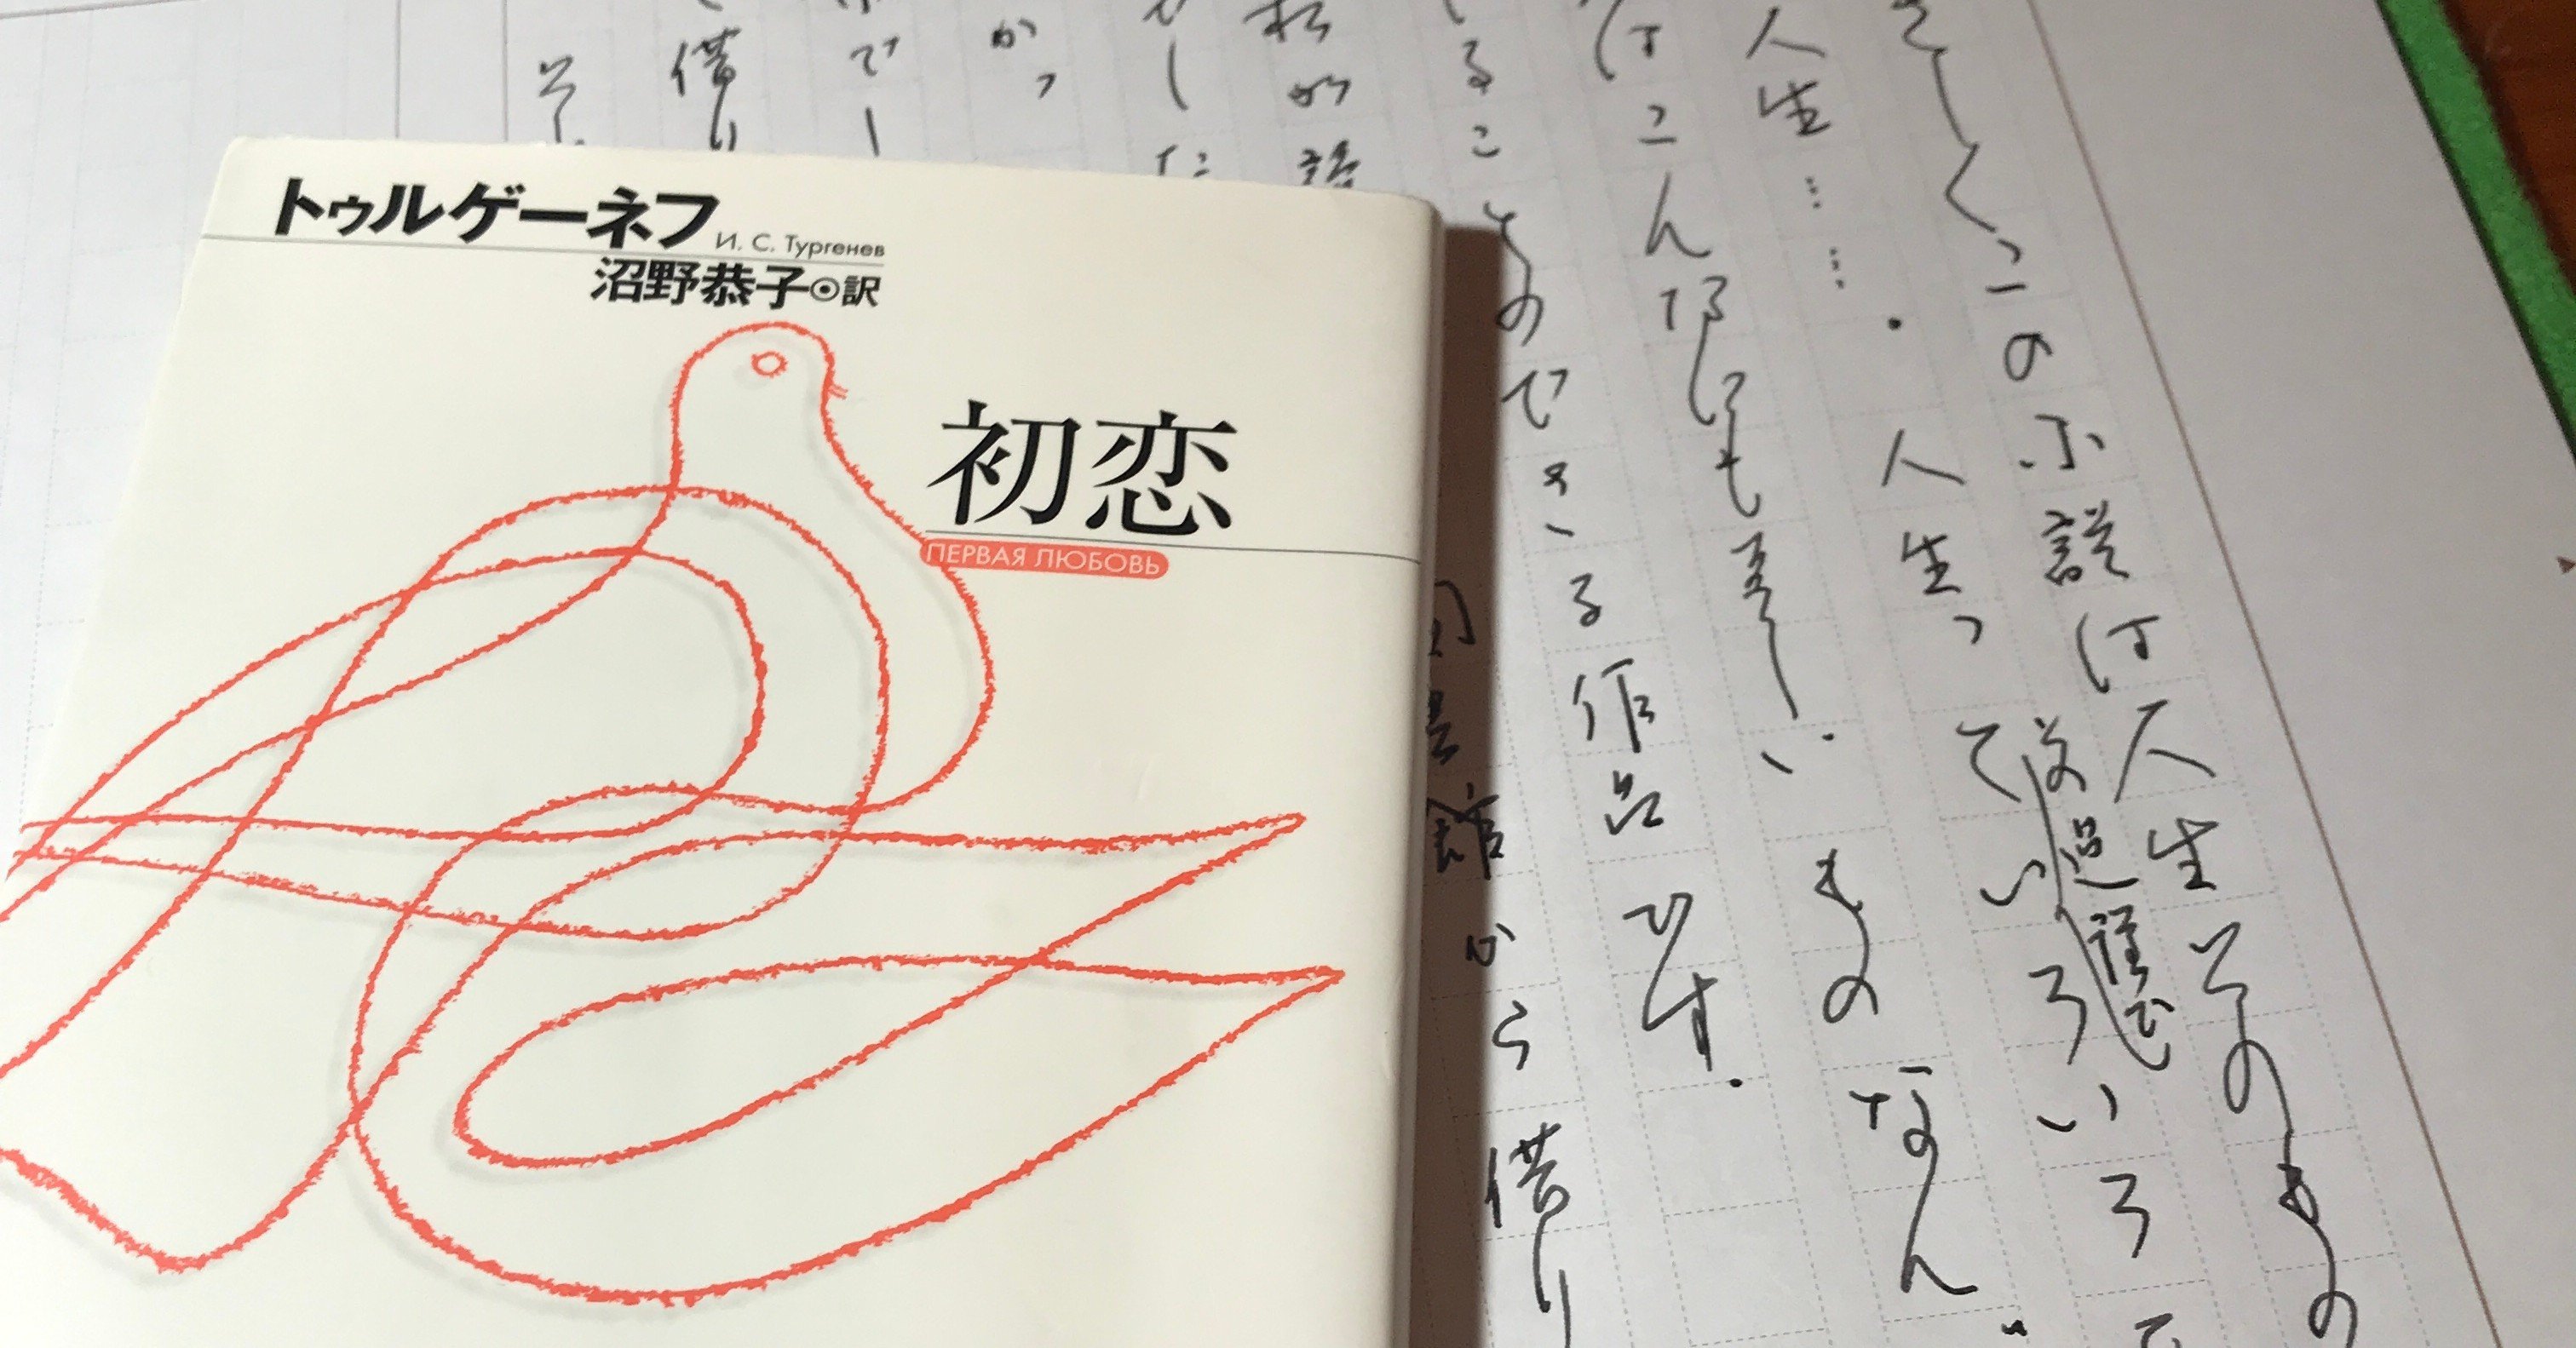 トゥルゲーネフ
И. С. Тургенев
沼野恭子◉訳
初恋
ПЕРВАЯ ЛЮБОВЬ
そして、この小説は人生そのもの
人生……。人生っていろいろで
はこんなにも美しいものなん
ることのできる作品です。
私的
図書館から借り
した
かっ
でし
借り
そ